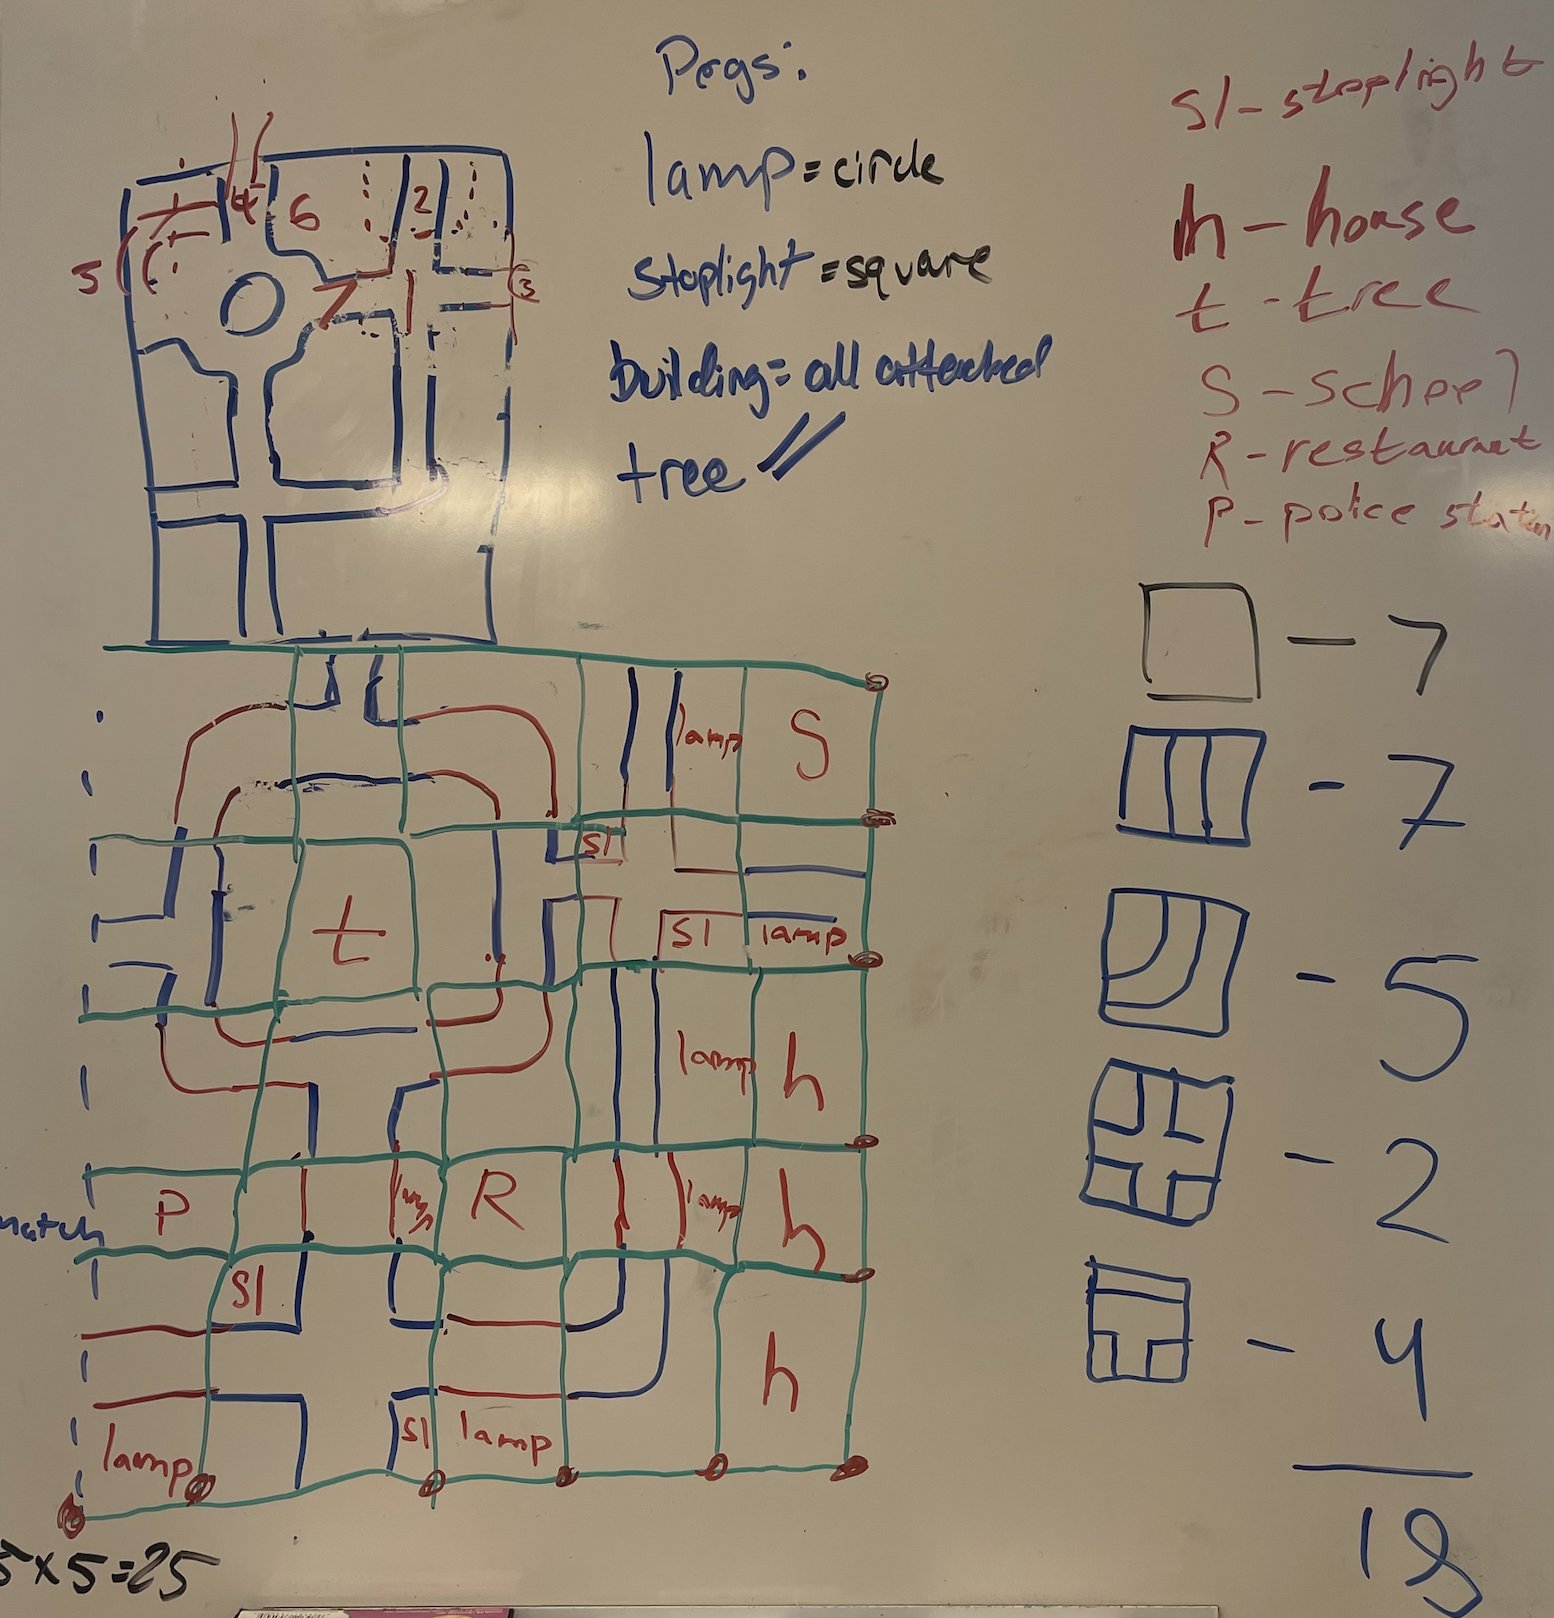 Pegs:
lamp = circle
stoplight = square
building = all attached
tree //
sl - stoplight
h - house
t - tree
S - school
R - restaurant
P - police station
4 6 2
5 7 1 3
□ - 7
- 7
- 5
- 2
- 4
18
lamp S
sl
t
sl lamp
lamp h
P lamp R lamp h
match
sl
h
sl lamp
lamp
5 x 5 = 25